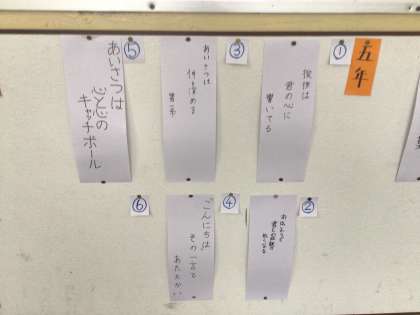 五年
①
挨拶は
君の心に
響いてる
②
③
あいさつは
仲を深める
第一歩
④
こんにちは
その一言で
あたたかい
⑤
あいさつは
心と心の
キャッチボール
⑥